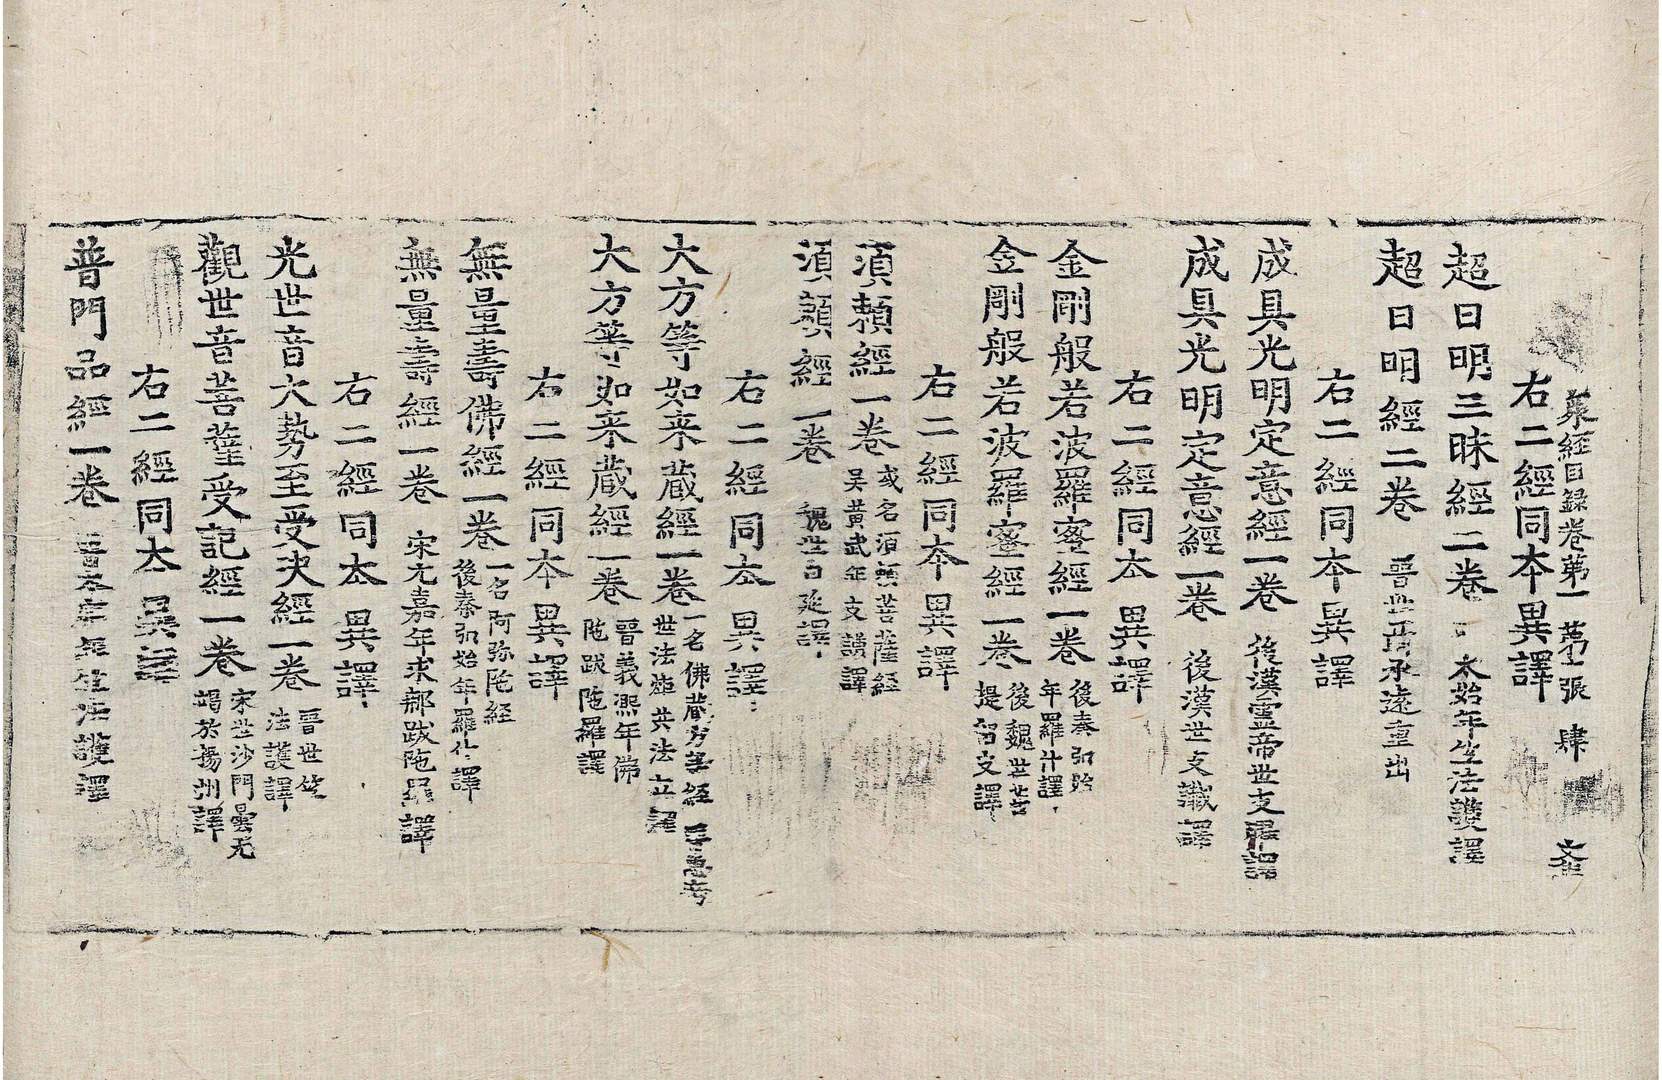 衆經目錄卷第一 第七張 肆
右二經同本異譯
超日明三昧經二卷 太始年竺法護譯
超日明經二卷 晉世聶承遠重出
右二經同本異譯
成具光明定意經一卷 後漢靈帝世支曜譯
成具光明定意經一卷 後漢世支讖譯
右二經同本異譯
金剛般若波羅蜜經一卷 後秦弘始
年羅什譯
金剛般若波羅蜜經一卷 後魏世菩
提留支譯
右二經同本異譯
須賴經一卷 或名須賴菩薩經
吴黄武年支謙譯
須賴經一卷 魏世白延譯
右二經同本異譯
大方等如来藏經一卷 一名佛藏方等經
世法炬共法立譯
大方等如来藏經一卷 晉義熙年佛
陁跋陁羅譯
右二經同本異譯
無量壽佛經一卷 一名阿弥陁經
後秦弘始年羅什譯
無量壽經一卷 宋元嘉年求那跋陁羅譯
右二經同本異譯
光世音大勢至受决經一卷 晉世竺
法護譯
觀世音菩薩受記經一卷 宋世沙門曇无
竭於揚州譯
右二經同本異譯
普門品經一卷 晉太康年竺法護譯